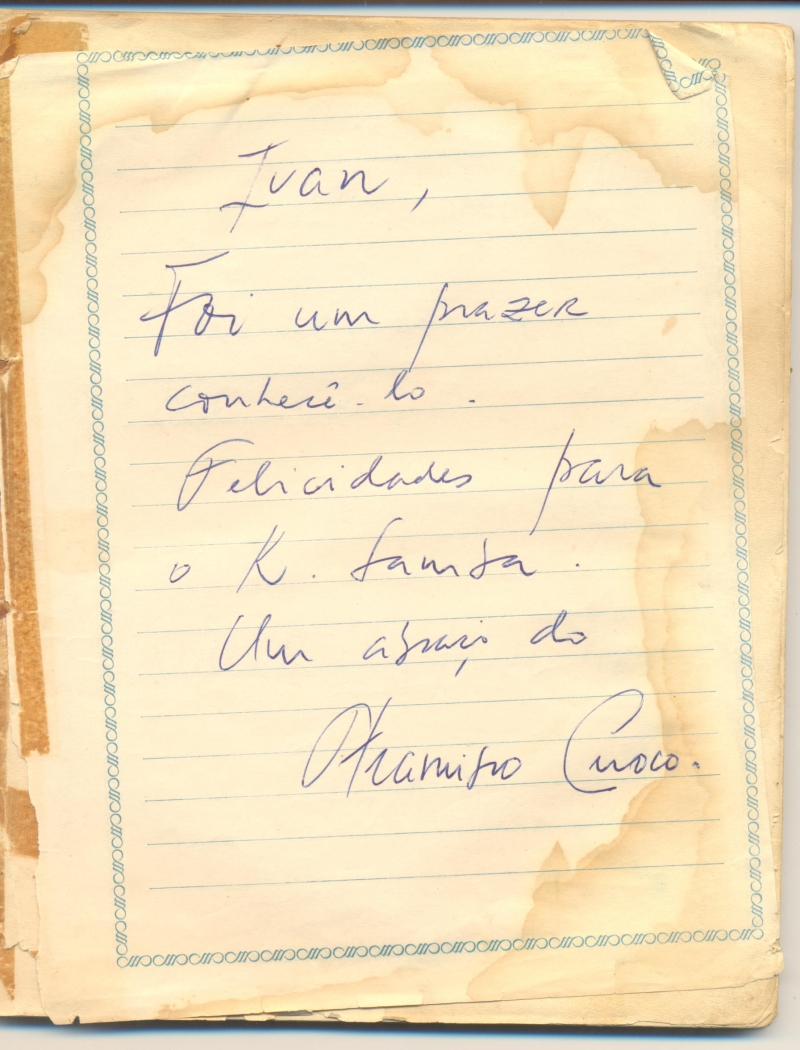 Ivan,
Foi um prazer
conhecê-lo.
Felicidades para
o K. Samba.
Um abraço do
Francisco Cuoco.